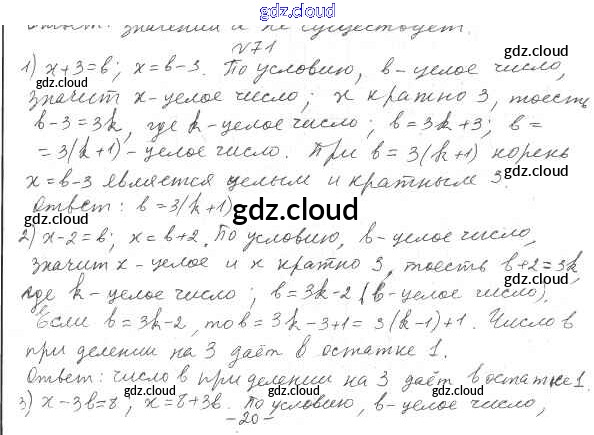 gdz.cloud
ответ: значений и не существует.
№71
gdz.cloud
1) x+3=в; x=в-3. По условию, в-целое число,
gdz.cloud
значит x-целое число; x кратно 3, тоесть
в-3=3k, где k-целое число; в=3k+3; в=
=3(k+1)-целое число. При в=3(k+1) корень
x=в-3 является целым и кратным 3.
gdz.cloud
Ответ: в=3(k+1)
gdz.cloud
2) x-2=в; x=в+2. По условию, в-целое число,
gdz.cloud
значит x-целое и x кратно 3, тоесть в+2=3k,
gdz.cloud
где k-целое число; в=3k-2 (в-целое число),
Если в=3k-2, то в=3k-3+1=3(k-1)+1. Число в
при делении на 3 даёт в остатке 1.
gdz.cloud
Ответ: число в при делении на 3 даёт в остатке 1.
3) x-3в=8; x=8+3в. По условию, в-целое число,
gdz.cloud
-20-